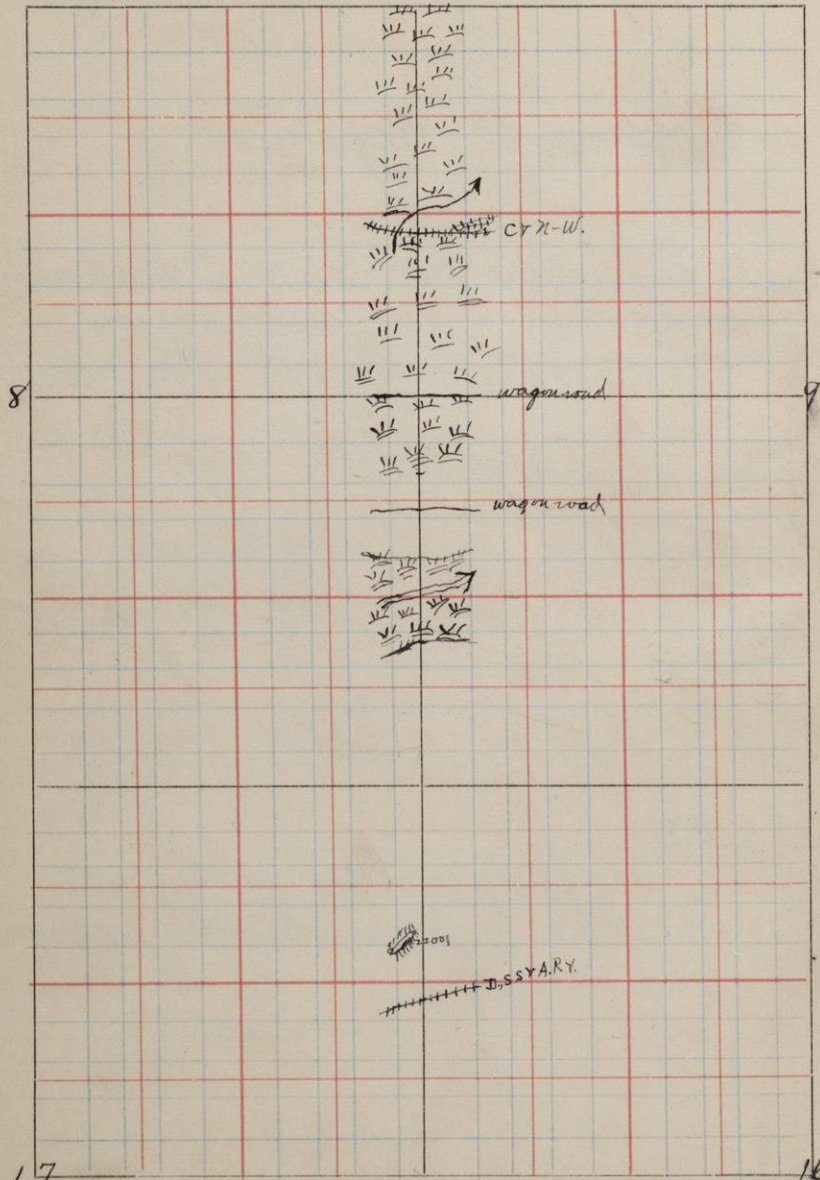 C & N-W.
8
wagon road
9
wagon road
22001
D, S S & A. RY.
17
16